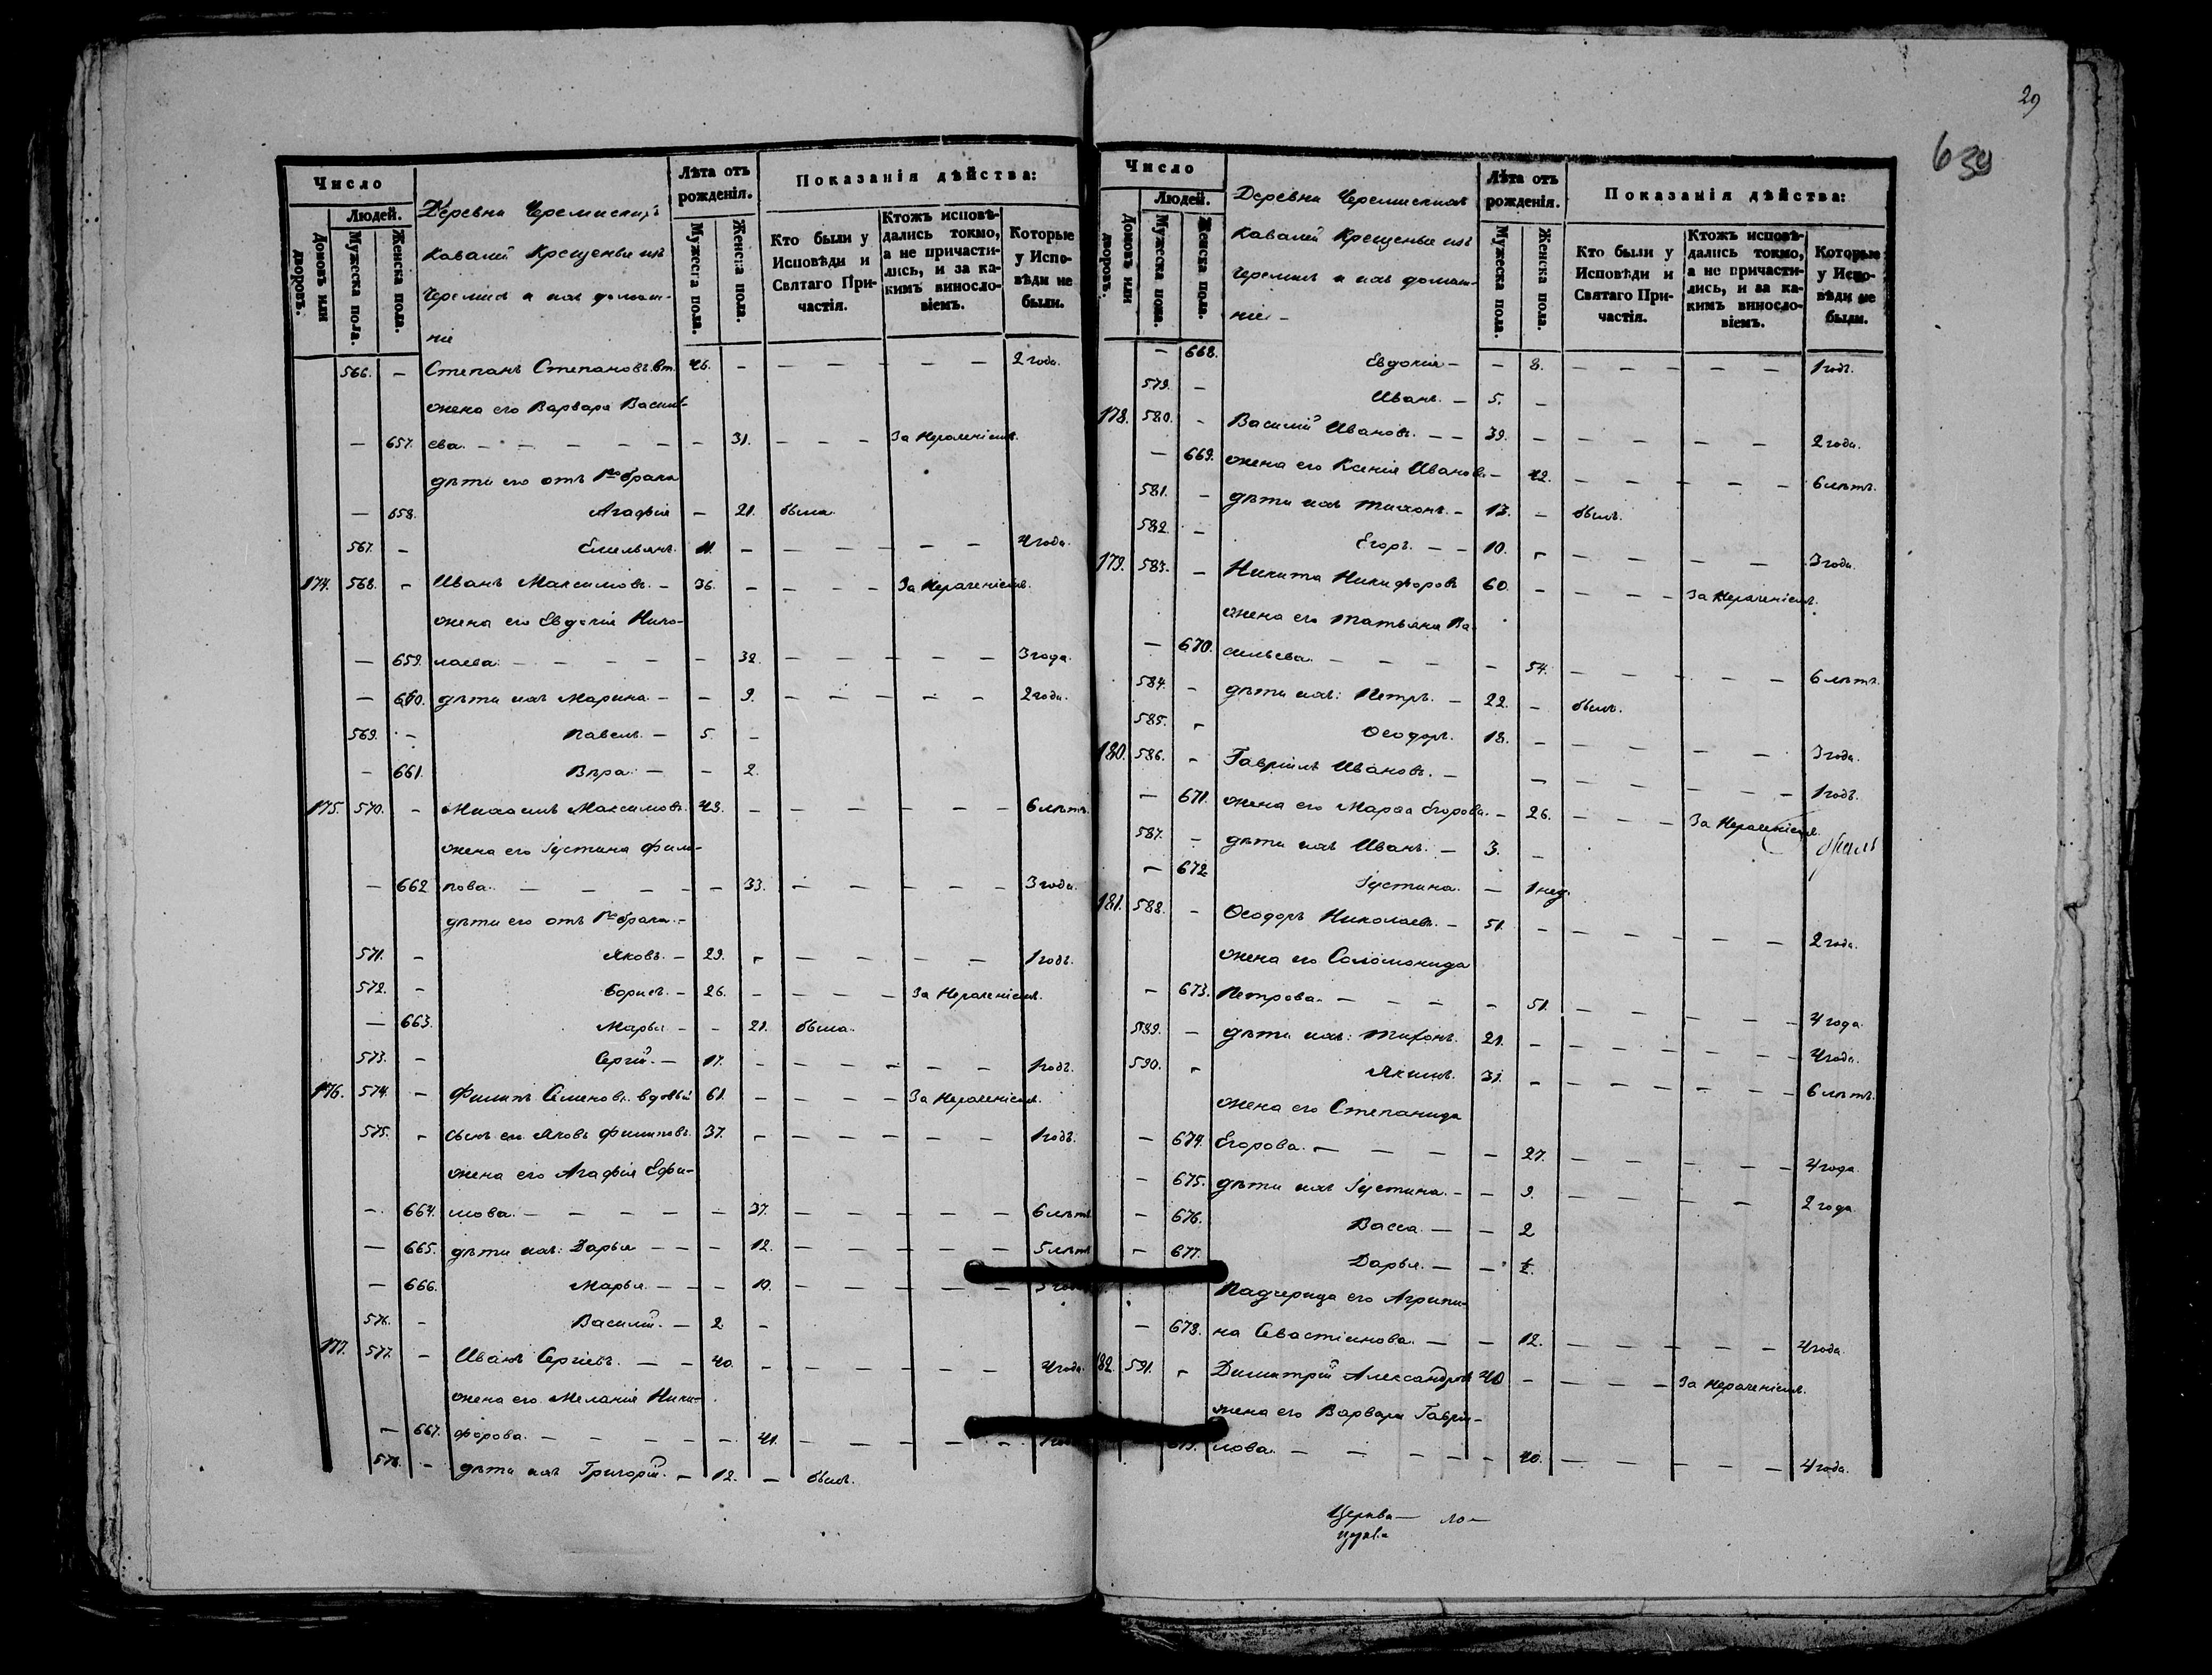 Число
Людей.
Домовъ или дворовъ.
Мужеска пола.
Женска пола.
Деревни Черемискихъ
Кавалей Крещенье изъ
Черемисъ и ихъ домаш-
ніе
Лѣта отъ рожденія.
Мужеска пола.
Женска пола.
Показанія дѣйства:
Кто были у Исповѣди и Святаго Причастія.
Ктожъ исповѣдались токмо, а не причастились, и за какимъ винословіемъ.
Которые у Исповѣди не были.
566. — Степанъ Степановъ вт. 46. — — — — — — 2 года.
жена его Варвара Василь-
— 657. ева. — — — — — — 31. — — — За Нераченіемъ.
дѣти его отъ 1го брака
— 658. Агафія — 21. была.
567. — Емельянъ. 11. — — — — — — 4 года.
174. 568. — Иванъ Максимовъ. — 36. — — — — За Нераченіемъ.
жена его Евдокія Нико-
— 659. лаева. — — — — — 32. — — — — — — 3 года.
— 660. дѣти ихъ Марина. — — 9. — — — — — — 2 года.
569. — Павелъ. — 5. —
— 661. Вѣра. — — 2.
175. 570. — Михаилъ Максимовъ. 43. — — — — — — 6 лѣтъ.
жена его Іустина Фили-
— 662 пова. — — — — — 33. — — — — — — 3 года.
дѣти его отъ 1го брака. —
571. — Яковъ. — 29. — — — — — — 1 годъ.
572. — Борисъ. — 26. — — — — За Нераченіемъ.
— 663. Марья — — 21. была.
573. — Сергій. — 17. — — — — — — 1 годъ.
176. 574. — Филипъ Семеновъ. вдовый 61. — — — — За Нераченіемъ.
575. — сынъ его Яковъ Филиповъ. 37. — — — — — — 1 годъ.
жена его Агафія Ефи-
— 664. мова. — — — — — 37. — — — — — — 6 лѣтъ
— 665. дѣти ихъ: Дарья — — — 12. — — — — — — 5 лѣтъ
— 666. Марья. — — — 10. — — — — — —
576. — Василій. — 2 —
177. 577. — Иванъ Сергіевъ. — — 40. — — — — — — 4 года.
жена его Меланія Ники-
— 667. форова. — — — — — 41. — — — — — —
578. — дѣти ихъ Григорій. — 12. — былъ.
29
639
Число
Людей.
Домовъ или дворовъ.
Мужеска пола.
Женска пола.
Деревни Черемискихъ
Кавалей Крещенье изъ
Черемисъ и ихъ домаш-
ніе —
Лѣта отъ рожденія.
Мужеска пола
Женска пола.
Показанія дѣйства:
Кто были у Исповѣди и Святаго Причастія.
Ктожъ исповѣдались токмо, а не причастились, и за какимъ винословіемъ.
Которые у Исповѣди не были.
— 668. Евдокія — — 8. — — — — — — 1 годъ.
579. — Иванъ. — 5. —
178. 580. — Василій Ивановъ. — — 39. — — — — — — 2 года.
— 669. жена его Ксенія Иванова — 42. — — — — — — 6 лѣтъ.
581. — дѣти ихъ Тихонъ. — 13. — былъ.
582. — Егоръ. — — 10. — — — — — — 3 года.
179. 583. — Никита Никифоровъ 60. — — — — За Нераченіемъ.
жена его Татьяна Ва-
— 670. сильева. — — — — — 54. — — — — — — 6 лѣтъ.
584. — дѣти ихъ: Петръ. — 22. — былъ.
585. — Ѳеодоръ. 18. — — — — — 3 года.
180. 586. — Гавріилъ Ивановъ. — — — — — — — 1 годъ.
— 671. жена его Марѳа Егорова. — 26. — — — За Нераченіемъ.
587. — дѣти ихъ Иванъ. — 3. —
— 672 Іустина. — 1 нед.
181. 588. — Ѳеодоръ Николаевъ. — 51. — — — — — — 2 года.
жена его Соломонида
— 673. Петрова. — — — — — 51. — — — — — — 4 года.
589. — дѣти ихъ: Тихонъ. 21. — — — — — — 4 года.
590. — Якимъ. 31. — — — — — — 6 лѣтъ.
жена его Степанида
— 674. Егорова. — — — — — 27. — — — — — 4 года.
— 675. дѣти ихъ Іустина. — — 9. — — — — — 2 года
— 676. Васса. — — 2
— 677. Дарья. — — ½.
Падчерица его Агрипи-
— 678. на Севастіянова. — — 12. — — — — — — 4 года.
182. 591. — Димитрій Александровъ 40 — — — — За Нераченіемъ.
жена его Варвара Гаврі-
679. лова. — — — — — 40. — — — — — — 4 года.